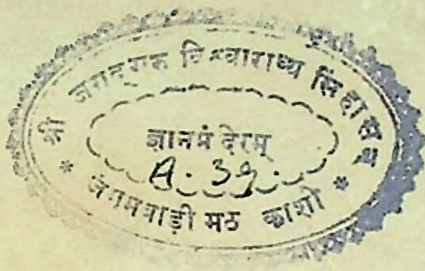 श्री जगद्गुरु विश्वाराध्य सिंहासन
ज्ञानमंदिरम्
A. 39.
* जंगमवाड़ी मठ काशी *